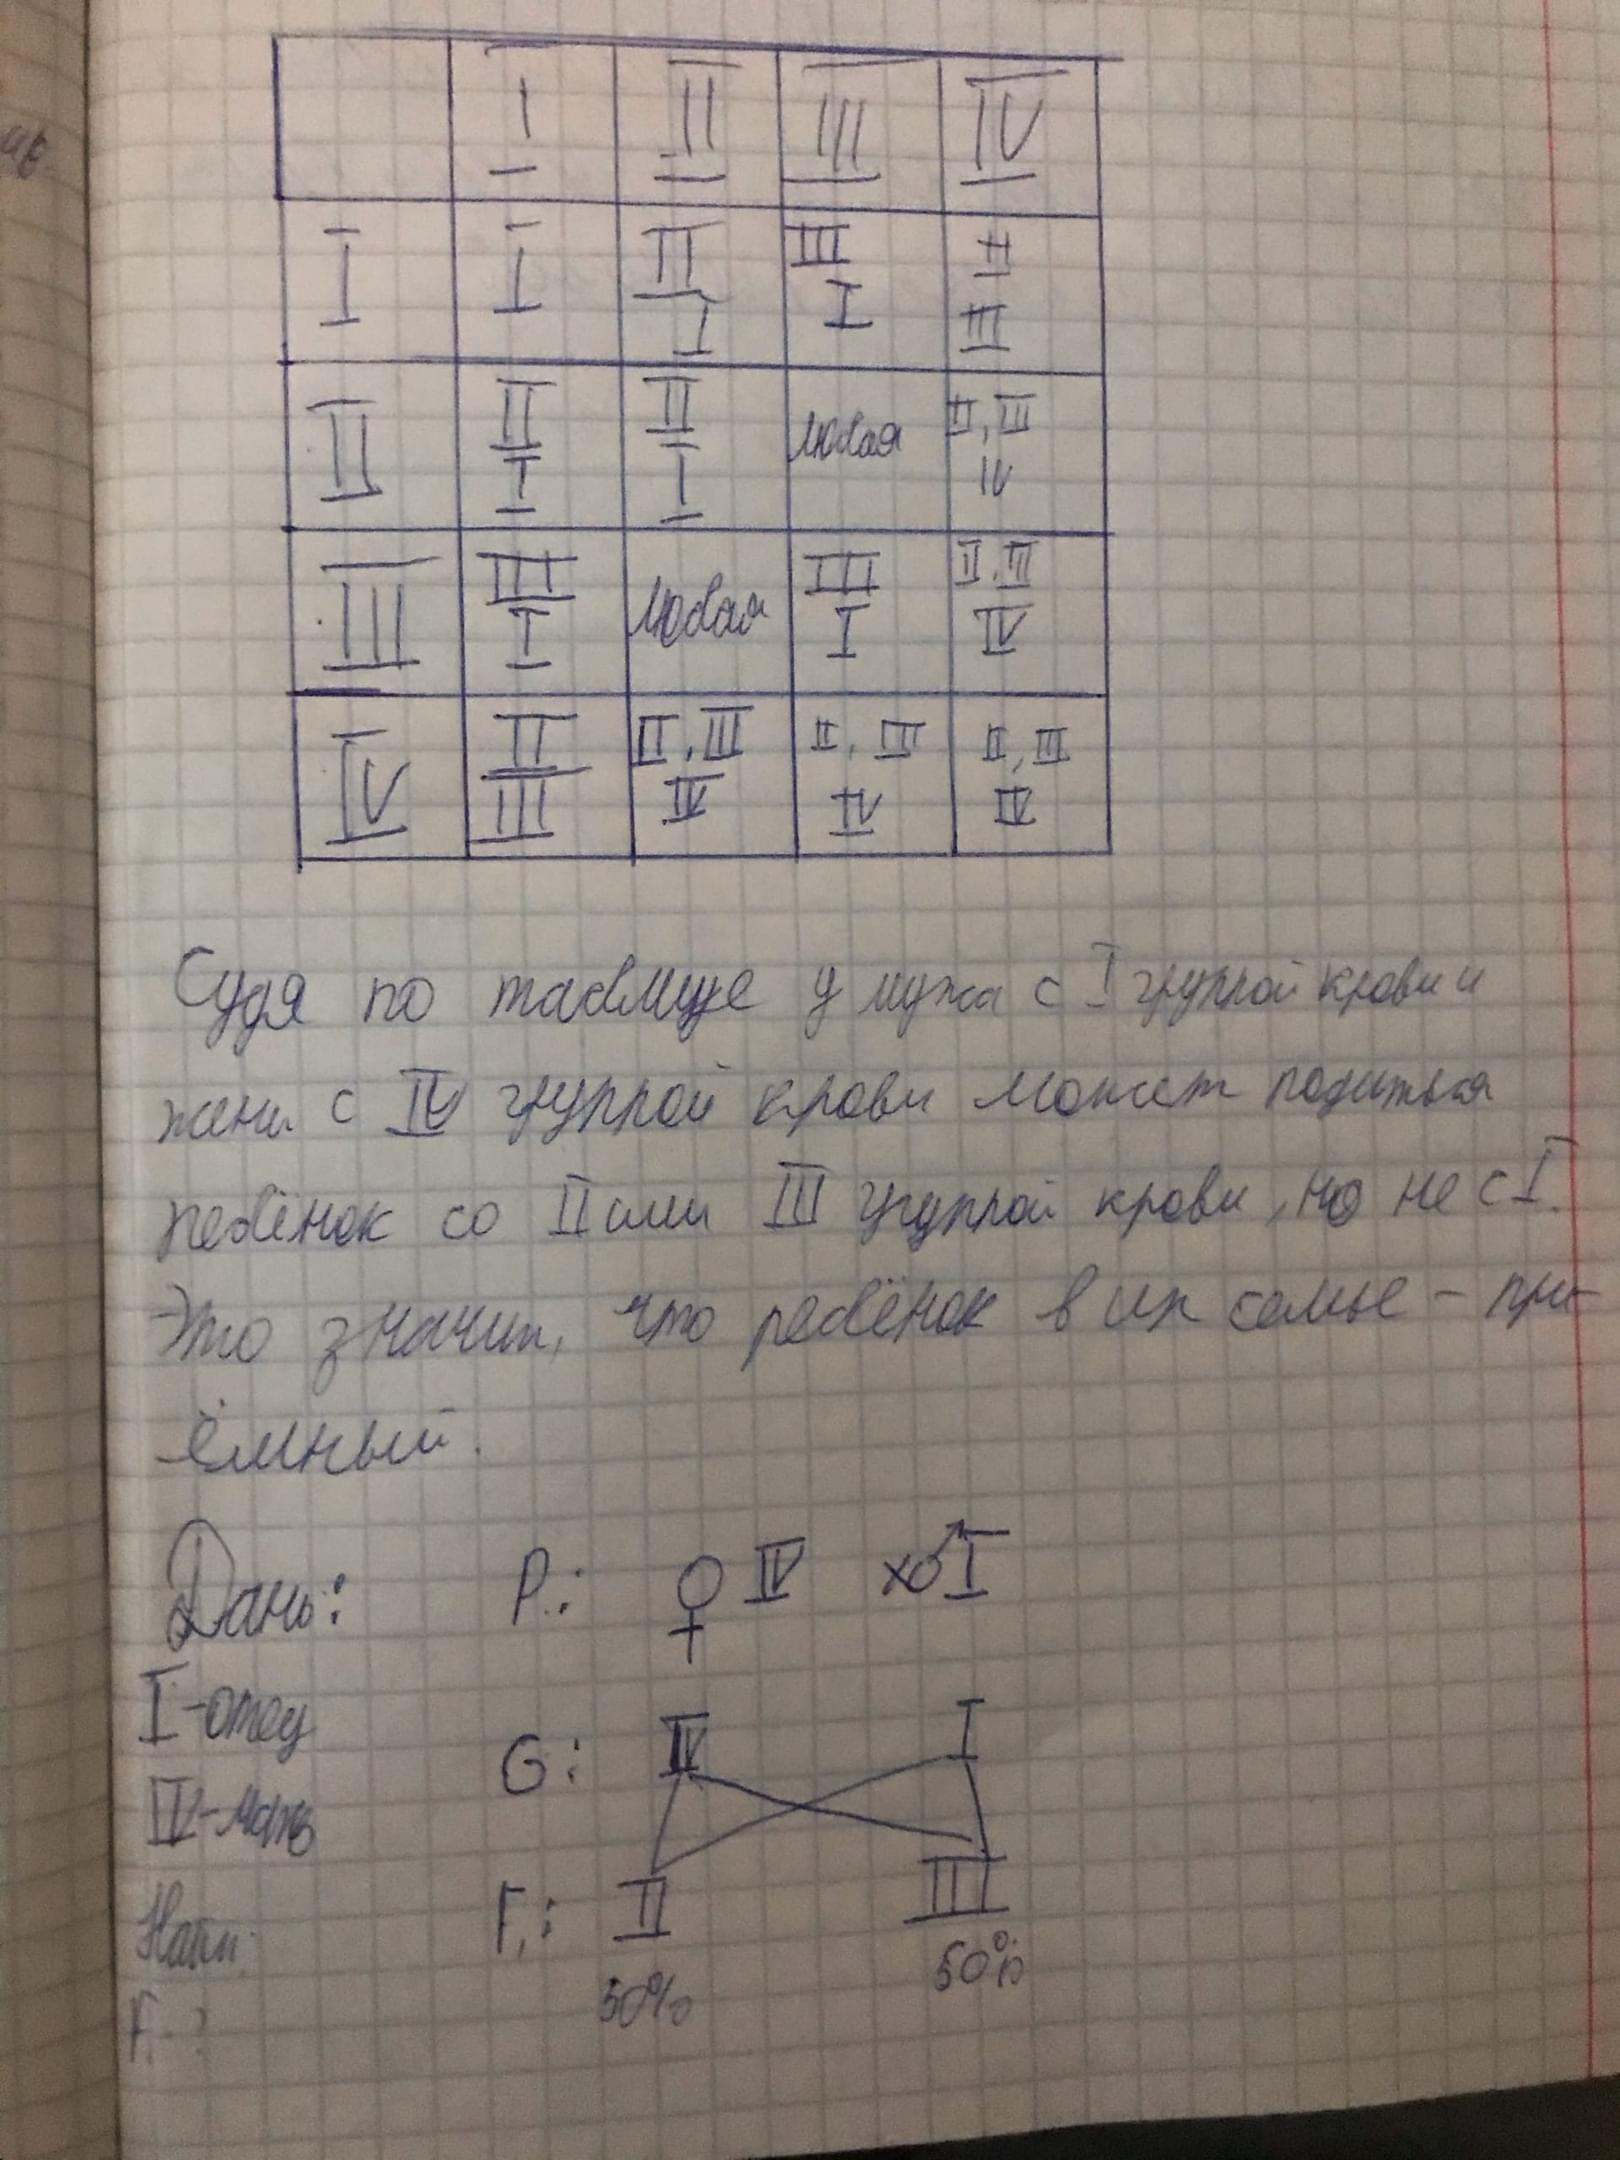 I II III IV
I I II I III I II III
II II I II I любая II, III IV
III III I любая III I II, III IV
IV II III II, III IV II, III IV II, III IV
Судя по таблице у мужа с I группой крови и
жены с IV группой крови может родиться
ребёнок со II или III группой крови, но не с I.
Это значит, что ребёнок в их семье – при-
ёмный.
Дано: P.: ♀ IV x♂ I
I-отец
G: IV I
IV-мать
Найти F₁: II III
F₁-? 50% 50%